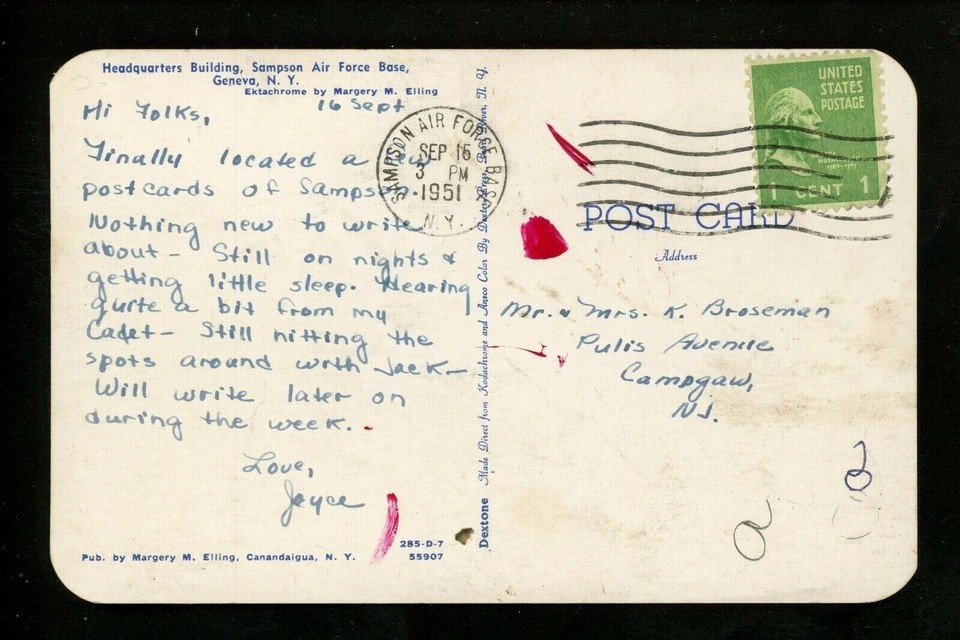 Headquarters Building, Sampson Air Force Base,
Geneva, N. Y.
Ektachrome by Margery M. Elling
16 Sept
Hi Folks,
Finally located a few
postcards of Sampson.
Nothing new to write
about - Still on nights &
getting little sleep. Hearing
quite a bit from my
Cadet - Still hitting the
spots around with Jack -
Will write later on
during the week.
Love,
Joyce
Pub. by Margery M. Elling, Canandaigua, N. Y.
285-D-7
55907
SAMPSON AIR FORCE BASE
SEP 15
3 PM
1951
N.Y.
Dextone Made Direct from Kodachrome and Ansco Color By Dexter Press, Pearl River, N. Y.
UNITED
STATES
POSTAGE
1 CENT 1
POST CARD
Address
Mr. & Mrs. K. Broseman
Pulis Avenue
Campgaw,
NJ.
a